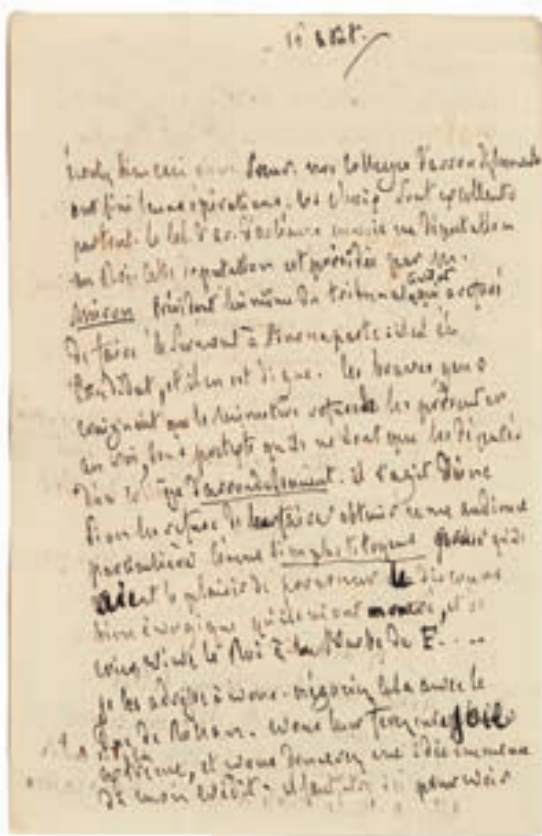 août.
bien cher Sœur. nos collèges d'arrondissement
ont fini leurs opérations. les choix sont excellents
partout. le col. d'ar. d'orléans envoie une députation
au Roi. cette députation est présidée par m.
miron président lui même du tribunal qui a refusé
de faire le serment à Buonaparte
Candidat, et il en est digne. les braves gens
craignent que le ministre refuse de les présenter
au roi, sous prétexte qu'ils ne sont que les députés
d'un collège d'arrondissement. il s'agit donc
si on les refuse de leur faire obtenir une audience
particulière comme simples citoyens pourvu qu'ils
aient le plaisir de prononcer le discours
bien énergique qu'ils m'ont montré, et de
crier vive le Roi à la Barbe de F....
je les adresse à vous. négociez cela avec le
Duc de Rohan. vous leur ferez une joie
extrême, et vous donnerez une idée immense
de mon crédit. il faut pour voir